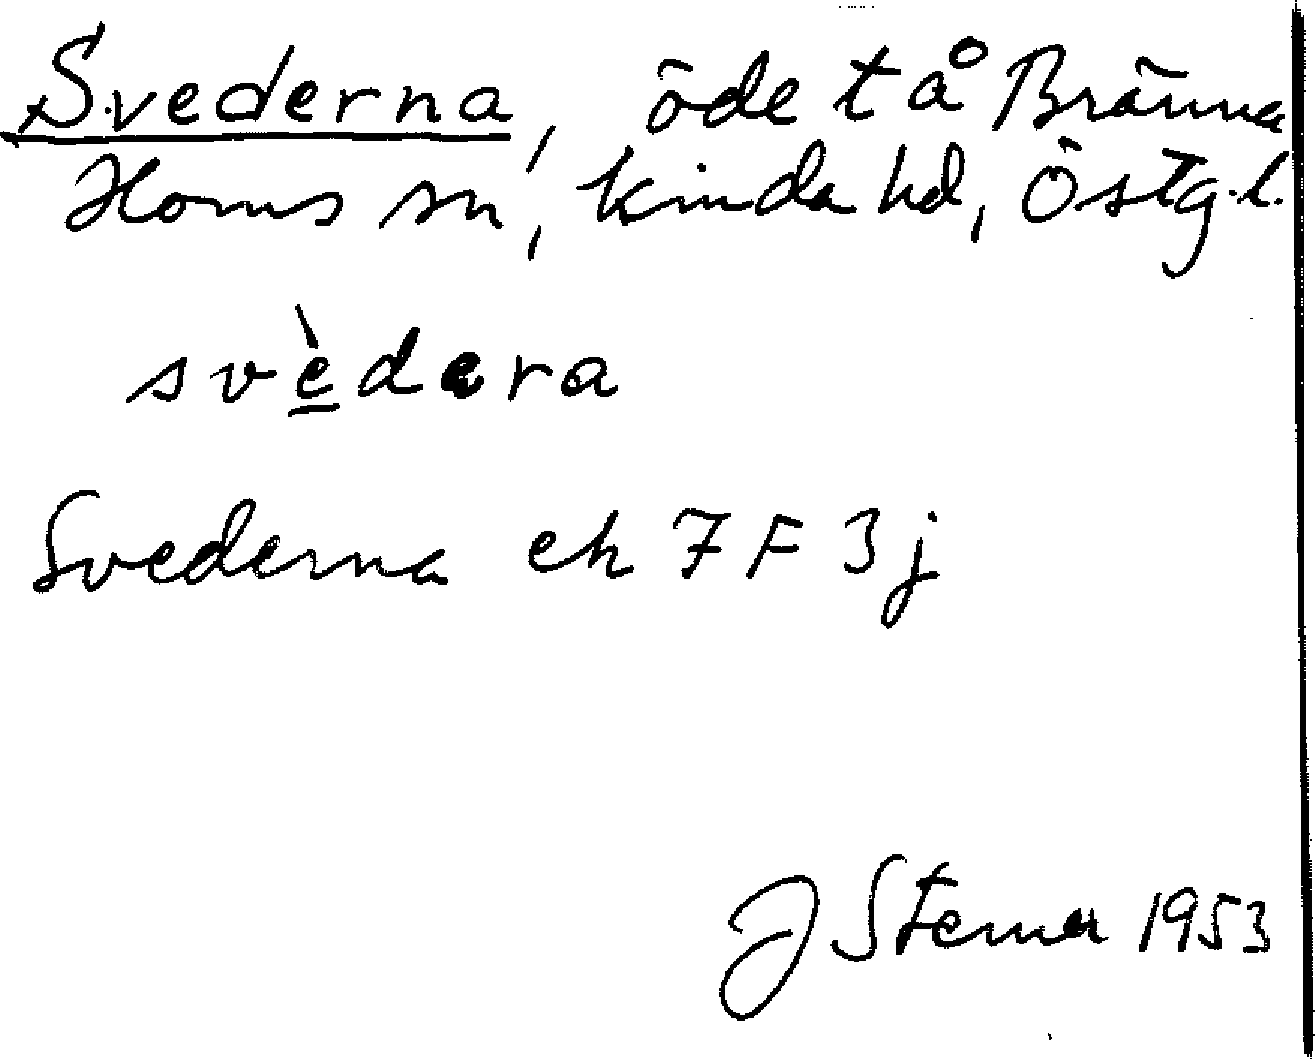 Svederna, öde t å Bränna
Horns sn, Kinda hd, Östg.l.
svèdara
Svederna ek 7 F 3 j
J Sterner 1953